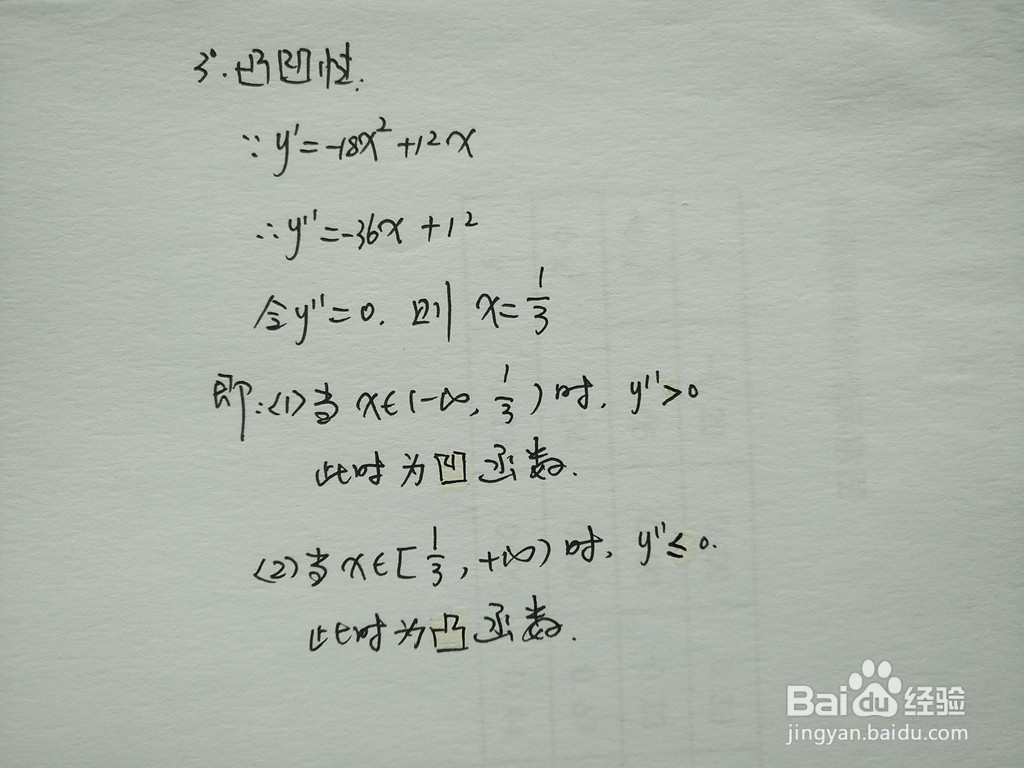 3°. 凸凹性.
∵ y'=-18x²+12x
∴ y''=-36x+12
令y''=0. 则 x=1/3
即:(1)当 x∈(-∞, 1/3)时, y''>0
此时为凹函数.
(2)当 x∈[1/3, +∞)时, y''≤0.
此时为凸函数.
Baidu经验
jingyan.baidu.com